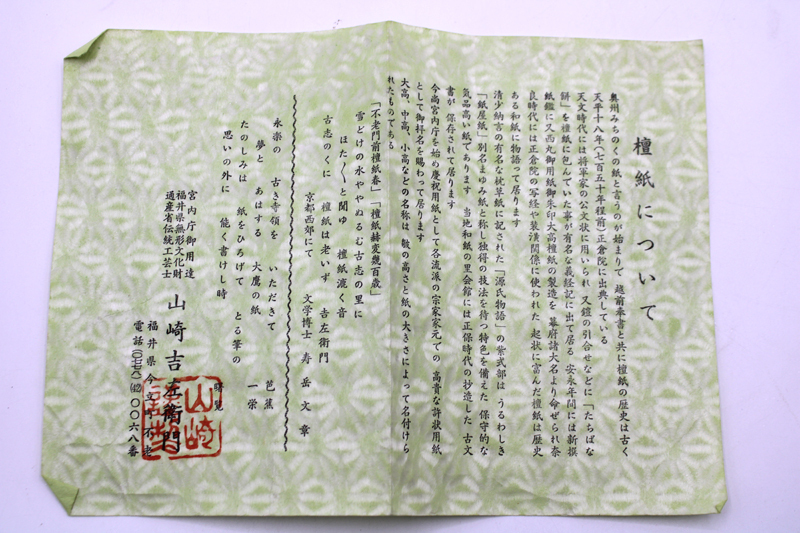 檀紙について
奥州みちのくの紙と言うのが始まりで 越前奉書と共に檀紙の歴史は古く
天平十八年(七百五十年程前)正倉院に出典している
天文時代には将軍家の公文状に用いられ 又鎧の引合せなどに 「たちばな
餅」を檀紙に包んでいた事が有名な義経記に出て居る 安永年間には新撰
紙鑑に又西丸御用紙御朱印大高檀紙の製造を 幕府諸大名より命ぜられ奈
良時代には正倉院の写経や装潢関係に使われた 起状に富んだ檀紙は歴史
ある和紙に物語って居ります
清少納言の有名な枕草紙に記された「源氏物語」の紫式部は うるわしき
「紙屋紙」別名まゆみ紙と称し独得の技法を待つ特色を備えた 保守的な
気品高い紙であります 当地和紙の里会館には正保時代の抄造した 古文
書が 保存されて居ります
今尚宮内庁を始め慶祝用紙として各流派の宗家家元での 高貴な許状用紙
として御拝名を賜わって居ります
大高、中高、小高などの名称は 皺の高さと紙の大きさによって名付けら
れたものである
「不老門前檀紙春」「檀紙赫変幾百歳」
雪どけの水ややぬるむ古志の里に
ほた〱と聞ゆ 檀紙漉く音
古志のくに 檀紙は老いず 吉左衛門
京都西郊にて 文学博士 寿岳文章
永楽の 古き寺領を いただきて 芭蕉
夢と あはする 大鷹の紙 一栄
たのしみは 紙をひろげて とる筆の
思いの外に 能く書けし時 曙覧
宮内庁御用達
福井県無形文化財
通産省伝統工芸士
山崎吉左衛門
福井県今立町不老
電話(〇七七八)〇〇六八番